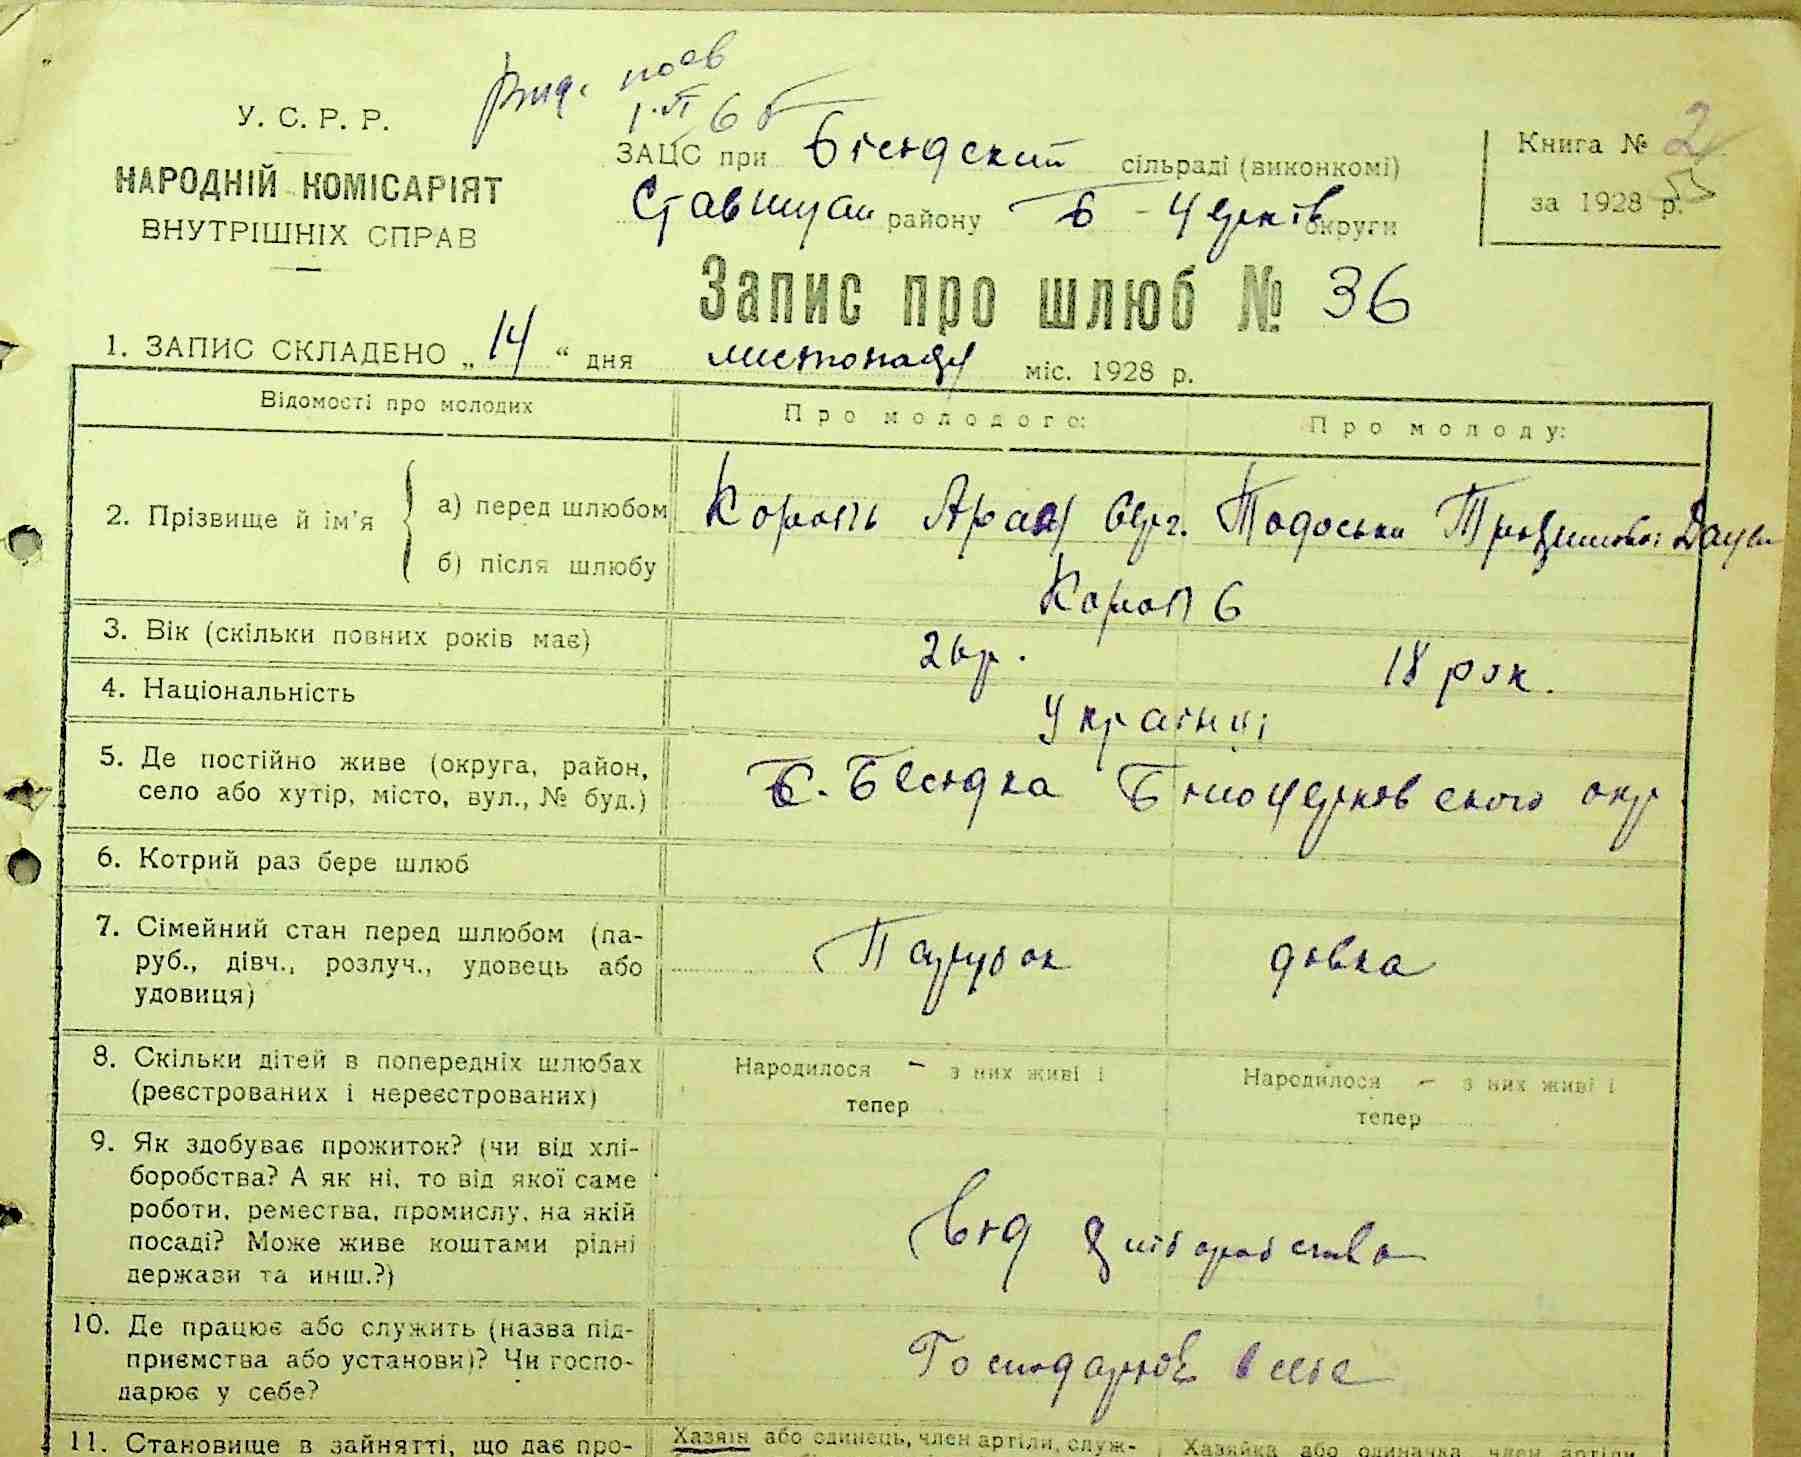 У. С. Р. Р.
НАРОДНІЙ КОМІСАРІЯТ
ВНУТРІШНІХ СПРАВ
ЗАЦС при сільраді (виконкомі)
району Б - Церків округи
Книга №
за 1928 р.
Запис про шлюб № 36
1. ЗАПИС СКЛАДЕНО „ 14 “ дня листопаду міс. 1928 р.
Відомості про молодих
Про молодого:
Про молоду:
2. Прізвище й ім'я
а) перед шлюбом
б) після шлюбу
Короп
Тодоська
Короп
3. Вік (скільки повних років має)
18 рок.
4. Національність
Українці
5. Де постійно живе (округа, район,
село або хутір, місто, вул., № буд.)
Бесідка Білоцерковського окр
6. Котрий раз бере шлюб
7. Сімейний стан перед шлюбом (па-
руб., дівч., розлуч., удовець або
удовиця)
Парубок
дівка
8. Скільки дітей в попередніх шлюбах
(реєстрованих і нереєстрованих)
Народилося – з них живі і
тепер
Народилося – з них живі і
тепер
9. Як здобуває прожиток? (чи від хлі-
боробства? А як ні, то від якої саме
роботи, ремества, промислу, на якій
посаді? Може живе коштами рідні
держави та инш.?)
Від хліборобства
10. Де працює або служить (назва під-
приємства або установи)? Чи госпо-
дарює у себе?
Господарює в себе
11. Становище в зайнятті, що дає про-
Хазяїн або одинець, член артіли, служ-
Хазяйка або одиначка, член артіли,